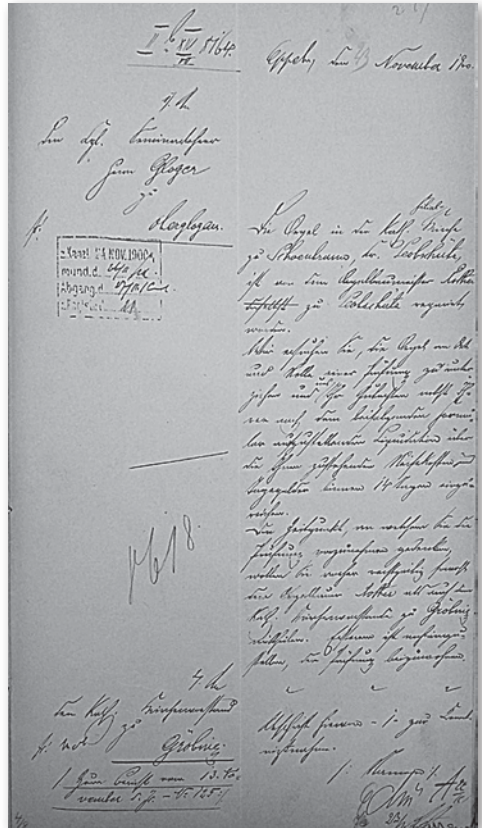 II b XV 8164.
IV
Oppeln, den 23 November 1900.
1. An
den Kgl. Seminarlehrer
Herrn Gloger
zu
Oberglogau.
z. Kanzl. 24. NOV. 1900
mund. d.
Abgang d.
Die Orgel in der Kath. Filial-Kirche
zu Schoenbrunn, Kr. Leobschütz,
ist von dem Orgelbaumeister Kotker
zu Leobschütz reparirt
worden.
Wir ersuchen Sie, die Orgel an Ort
und Stelle einer Prüfung zu unter
ziehen und uns Ihr Gutachten nebst Ih
rer nach dem beifolgenden Formu
lar aufzustellenden Liquidation über
die Ihnen zustehenden Reisekosten und
Tagegelder binnen 14 Tagen einzu
reichen.
Den Zeitpunkt, an welchem Sie die
Prüfung vorzunehmen gedenken,
wollen Sie vorher rechtzeitig sowohl
dem Orgelbauer Kotker als auch dem
Kath. Kirchenvorstande zu Gröbnig
mittheilen. Ersterem ist anheimzu
stellen, der Prüfung beizuwohnen.
2. An
den Kath. Kirchenvorstand
zu
Gröbnig.
Zum Bericht vom 13. No
vember d. Js.
Abschrift hiervon - 1 - zur Kennt
nißnahme.